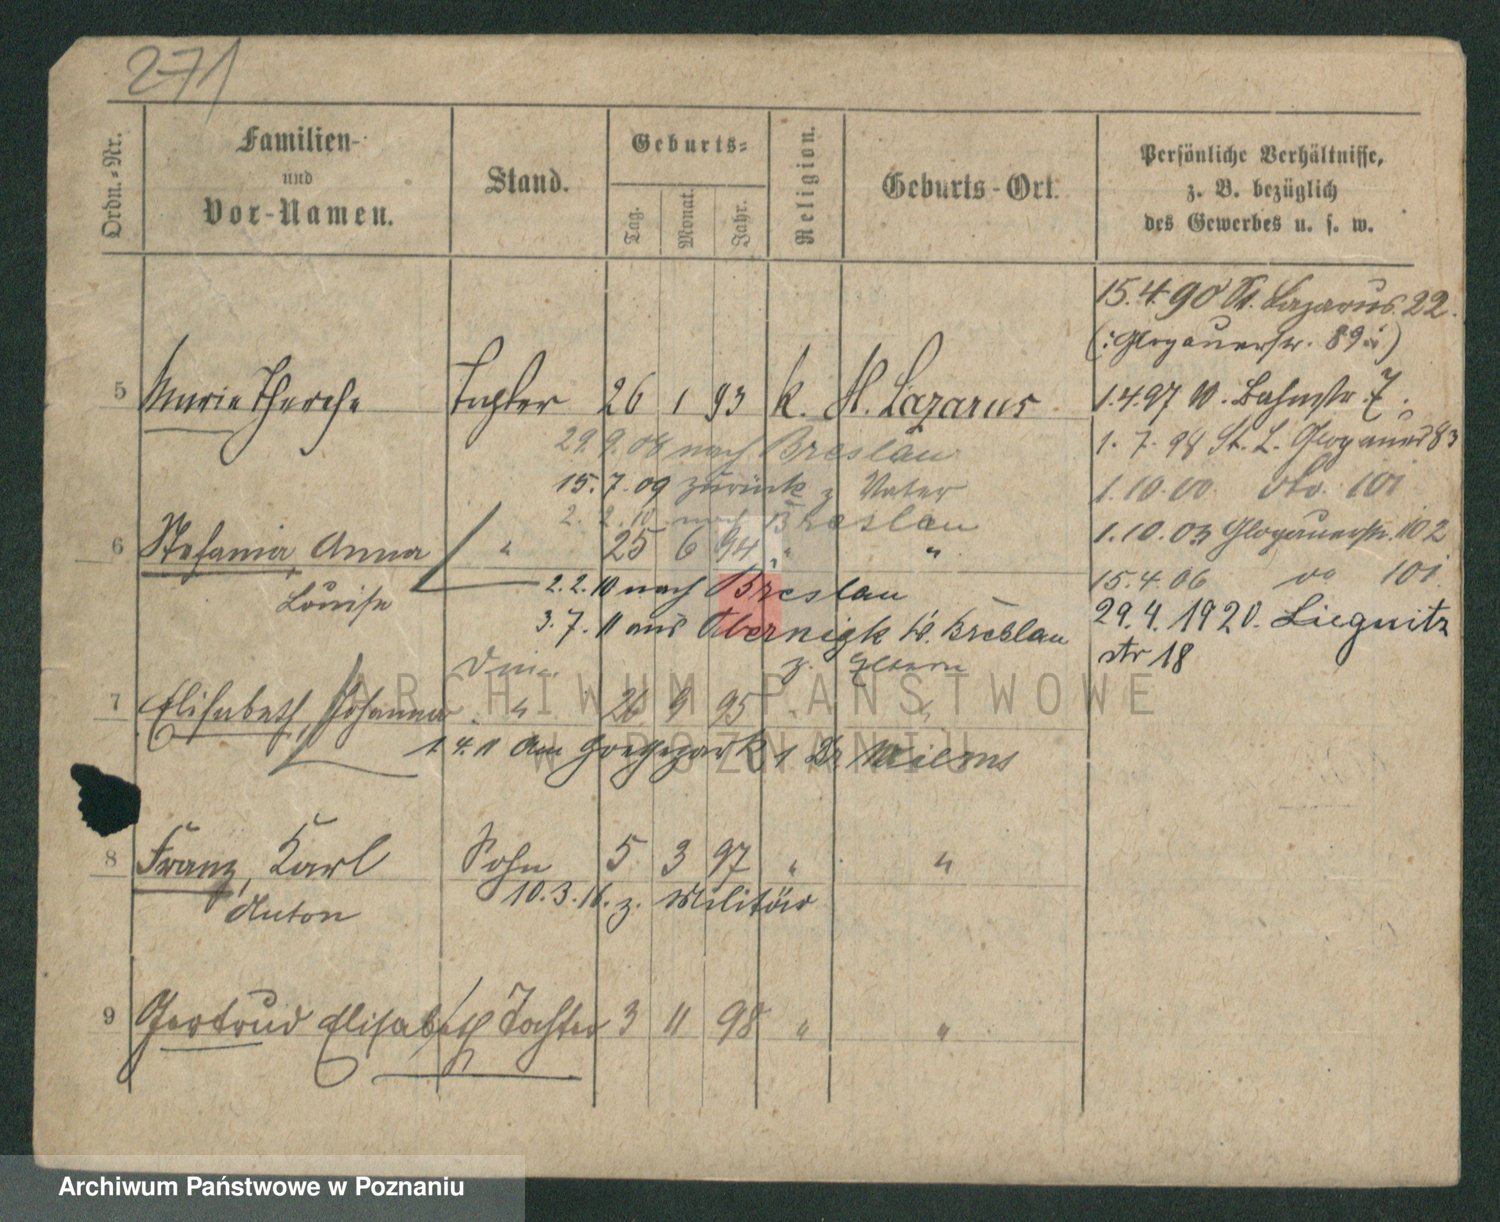 271
Ordn.-Nr. Familien- und Vor-Namen. Stand. Geburts- Tag. Monat. Jahr. Religion. Geburts-Ort. Persönliche Verhältnisse, z. B. bezüglich des Gewerbes u. s. w.
15.4.90 St. Lazarus 22.
(: Glogauerstr. 89 :)
5 Marie Therese Tochter 26 1 93 k. St. Lazarus 1.4.97 W. Bahnstr. 7.
29.9.08 nach Breslau 1.7.98 St. L. Glogauer 83
15.7.09 zurück z Vater 1.10.00 do. 101
2.2.10 nach Breslau
6 Stefania, Anna " 25 6 94 " " 1.10.03 Glogauerstr. 102
Louise 2.2.10 nach Breslau 15.4.06 do 101
3.7.11 aus Obernigk b. Breslau 29.4.1920. Liegnitz
z. Eltern str 18
7 Elisabeth, Johanna " 26 9 95 " "
1.4.11 Am 1 Dr. Wilms
8 Franz, Karl Sohn 5 3 97 " "
Anton 10.3.16. z. Militär
9 Gertrud Elisabeth Tochter 3 11 98 " "
ARCHIWUM PAŃSTWOWE
W POZNANIU
Archiwum Państwowe w Poznaniu